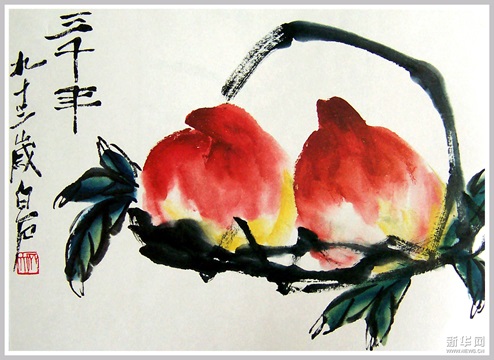 三千年
九十三歲白石
新华网
WWW.NEWS.CN